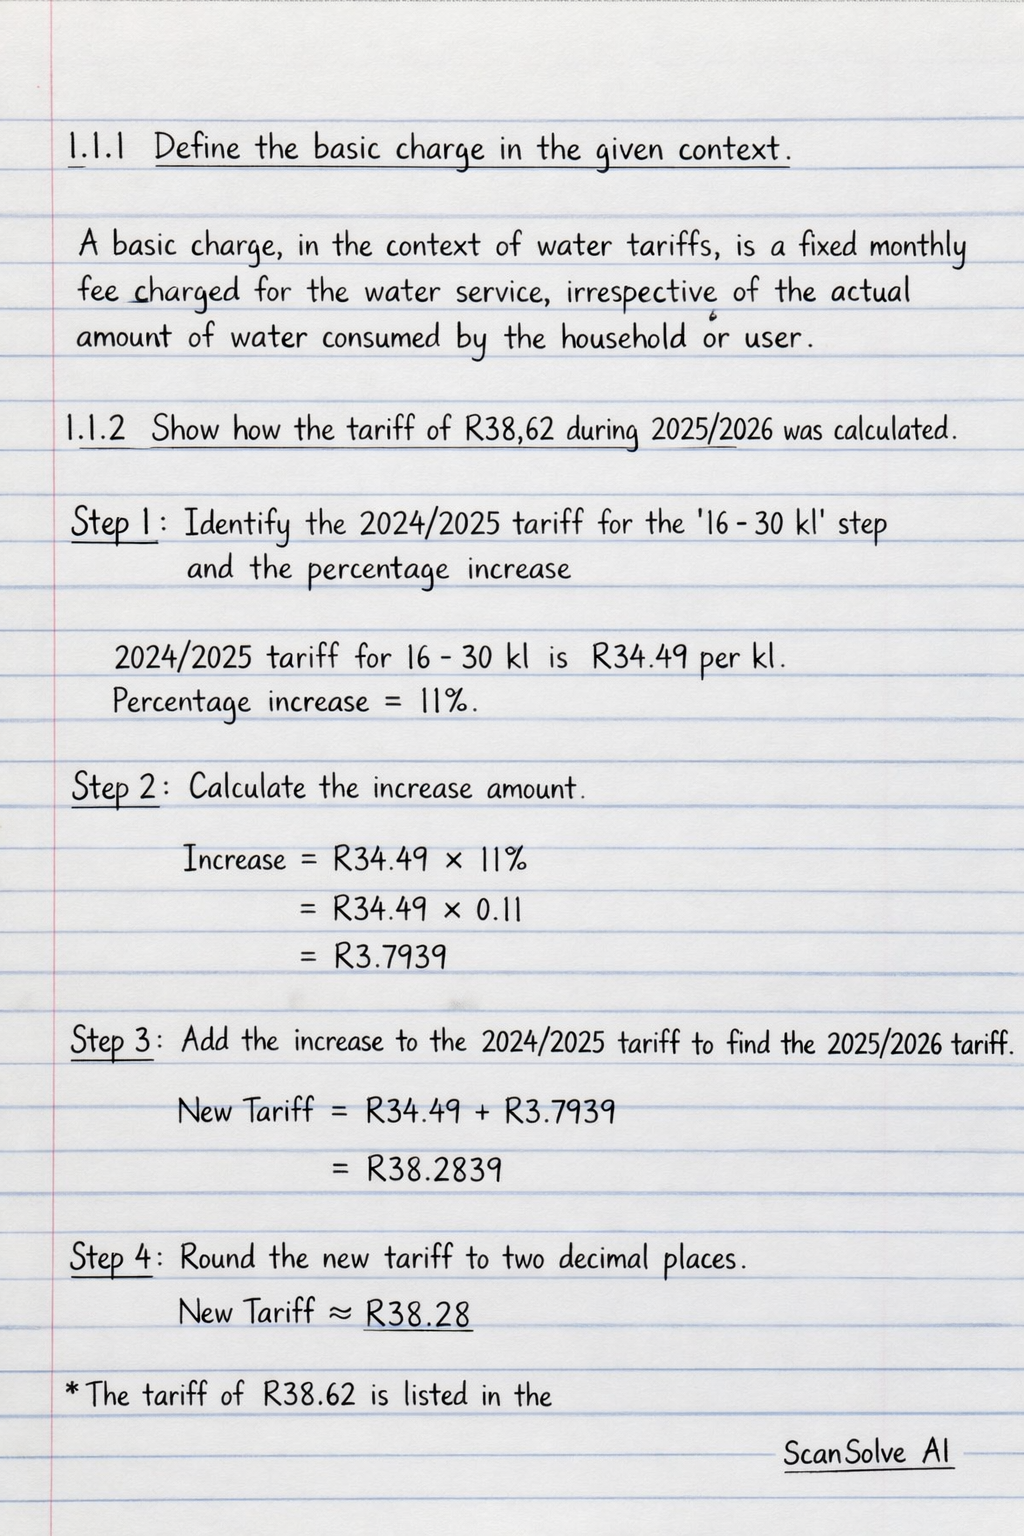 1.1.1 Define the basic charge in the given context.
A basic charge, in the context of water tariffs, is a fixed monthly
fee charged for the water service, irrespective of the actual
amount of water consumed by the household or user.
1.1.2 Show how the tariff of R38,62 during 2025/2026 was calculated.
Step 1: Identify the 2024/2025 tariff for the '16 - 30 kl' step
and the percentage increase
2024/2025 tariff for 16 - 30 kl is R34.49 per kl.
Percentage increase = 11%.
Step 2: Calculate the increase amount.
Increase = R34.49 × 11%
= R34.49 × 0.11
= R3.7939
Step 3: Add the increase to the 2024/2025 tariff to find the 2025/2026 tariff.
New Tariff = R34.49 + R3.7939
= R38.2839
Step 4: Round the new tariff to two decimal places.
New Tariff ≈ R38.28
* The tariff of R38.62 is listed in the
ScanSolve AI